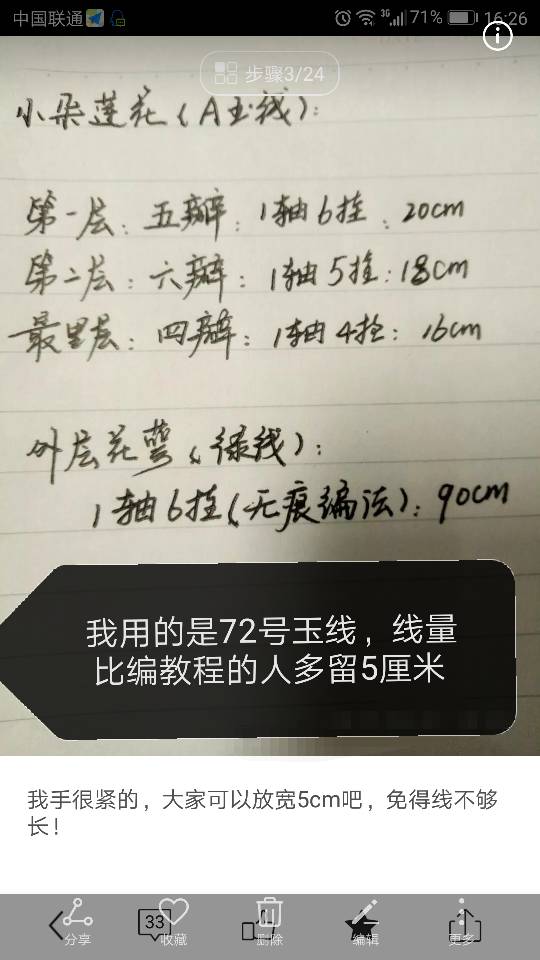 中国联通
3G
71%
16:26
步骤3/24
小朵莲花(A玉线):
第一层:五瓣:1轴6挂:20cm
第二层:六瓣:1轴5挂:18cm
最里层:四瓣:1轴4挂:16cm
外层花萼(绿线):
1轴6挂(无痕编法):90cm
我用的是72号玉线，线量
比编教程的人多留5厘米
我手很紧的，大家可以放宽5cm吧，免得线不够
长！
33
分享
收藏
删除
编辑
更多